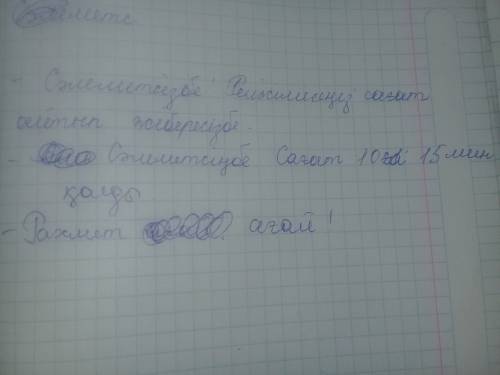 - Сәлеметсізбе! Реніжмесеңіз сағат
айтып жібересізбе.
- Сәлеметсізбе Сағат 10ға 15 мин
қалды
- Рахмет ағай!